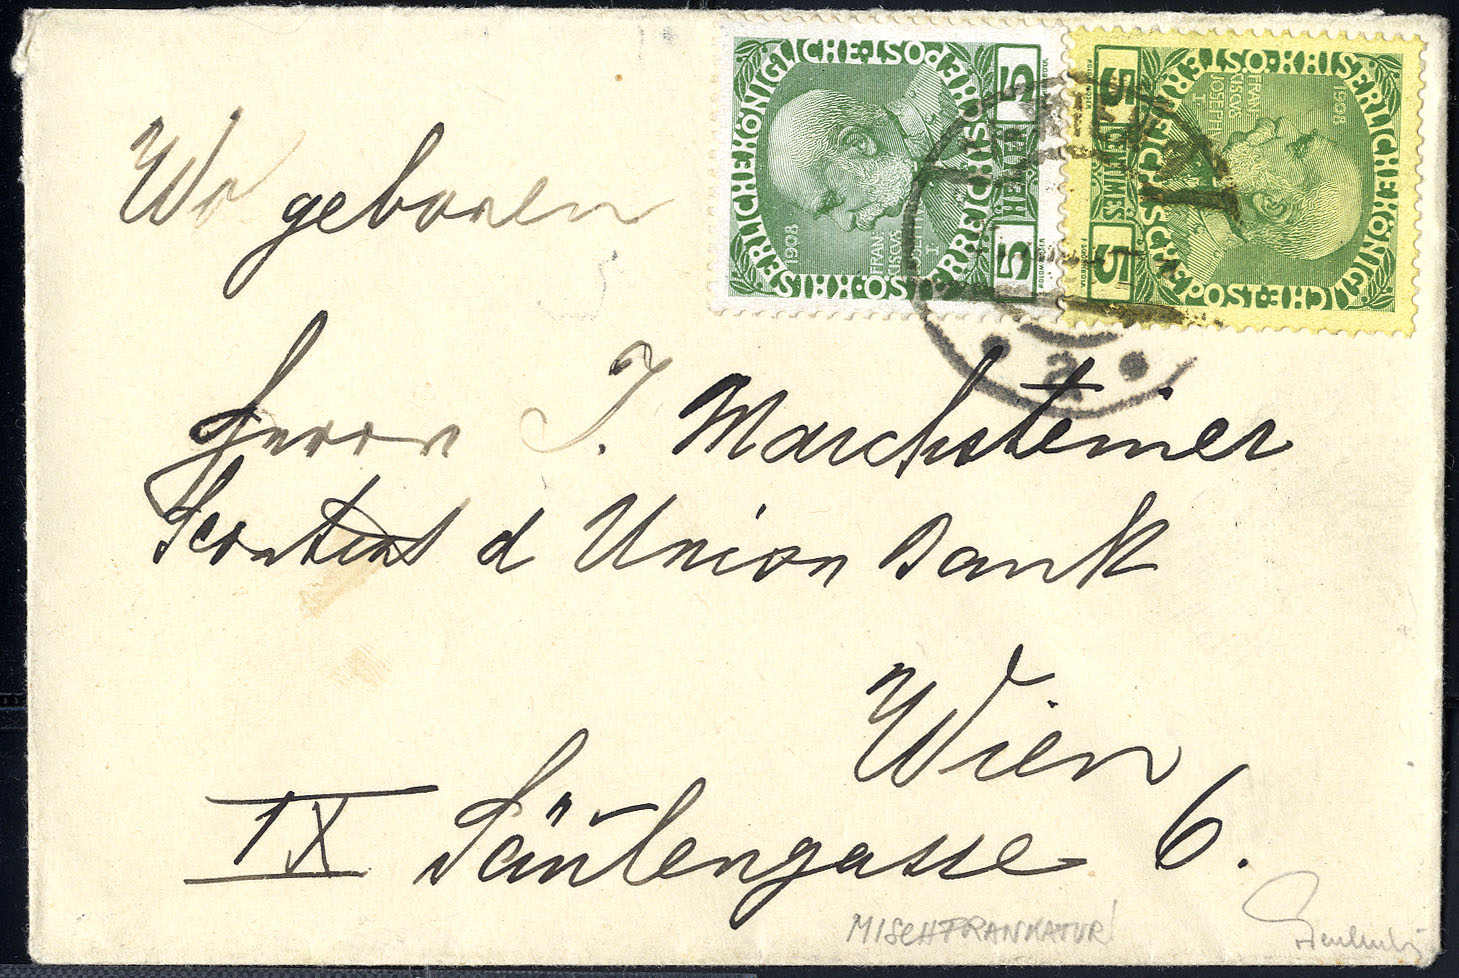 KAISERLICHE KÖNIGLICHE ÖSTERREICHISCHE POST
1908
FRANCISCVS JOSEPH I
5 HELLER 5
KAISERLICHE KÖNIGLICHE ÖSTERREICHISCHE POST
1908
5 CENTIMES 5
WIEN
2
Wo geboren
Herrn J. Marchsteiner
d Union Bank
Wien
IX Säulengasse 6.
MISCHFRANKATUR!